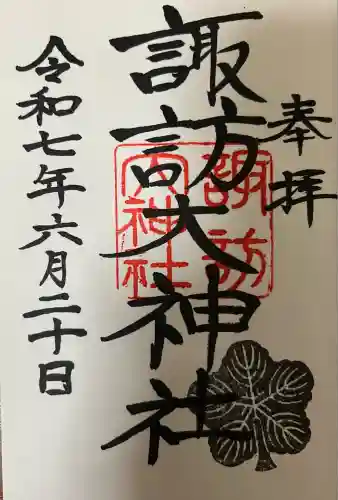 奉拝
諏訪大神社
諏訪
大神社
令和七年六月二十日